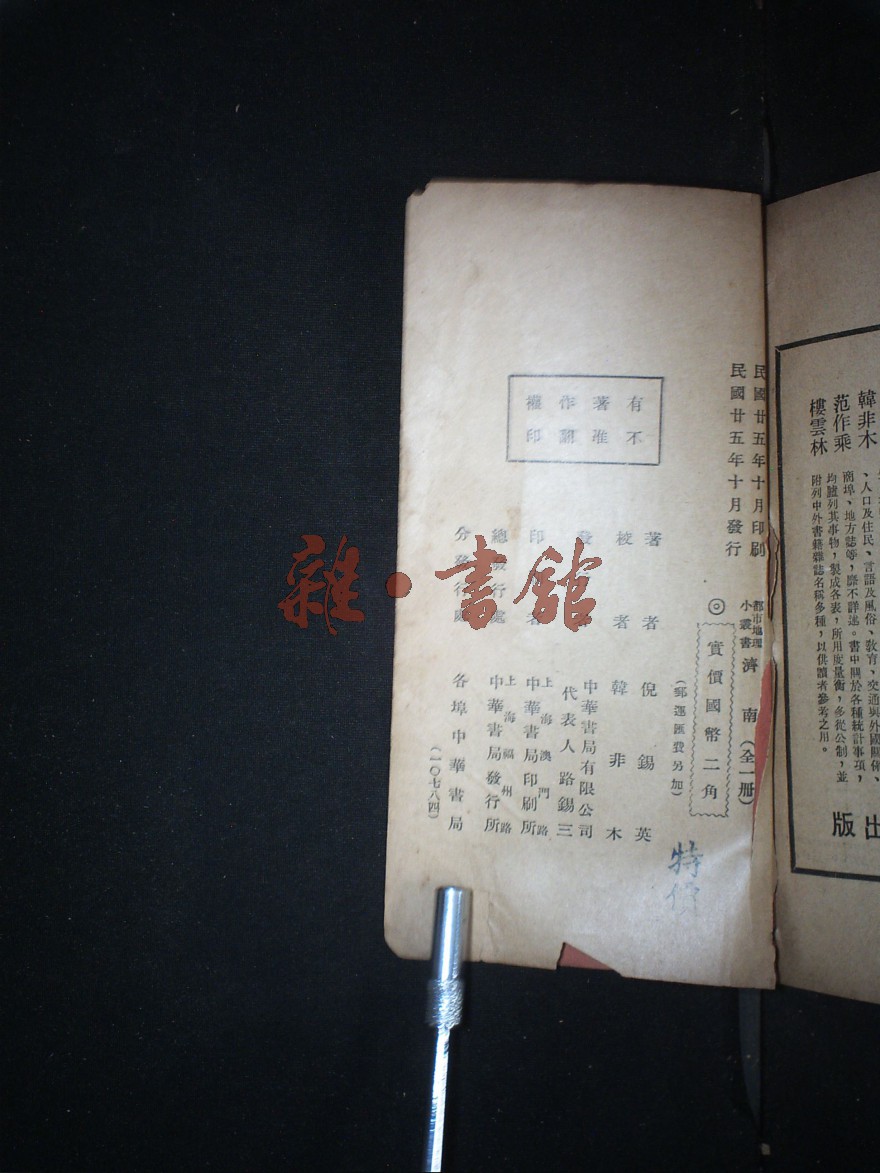 韓非木
范作乘
樓雲林
、人口及住民、言語及風俗、教育、交通與外國關係、
商埠、地方誌等，靡不詳述。書中關於各種統計事項，
均臚列其事物，製成各表，所用度量衡，多從公制，並
附列中外書籍雜誌名稱多種，以供讀者參考之用。
出
版
民國廿五年十月印刷
民國廿五年十月發行
都市地理
小叢書
濟南（全一冊）
◎實價國幣二角
（郵運匯費另加）
有不
著准
作翻
權印
著者 倪錫英
校者 韓非木
中華書局有限公司
代表人 路錫三
印 者 上海澳門路
中華書局印刷所
總發行處 上海福州路
中華書局發行所
分發行處 各埠中華書局
（一〇七八四）
特價
雜·書館